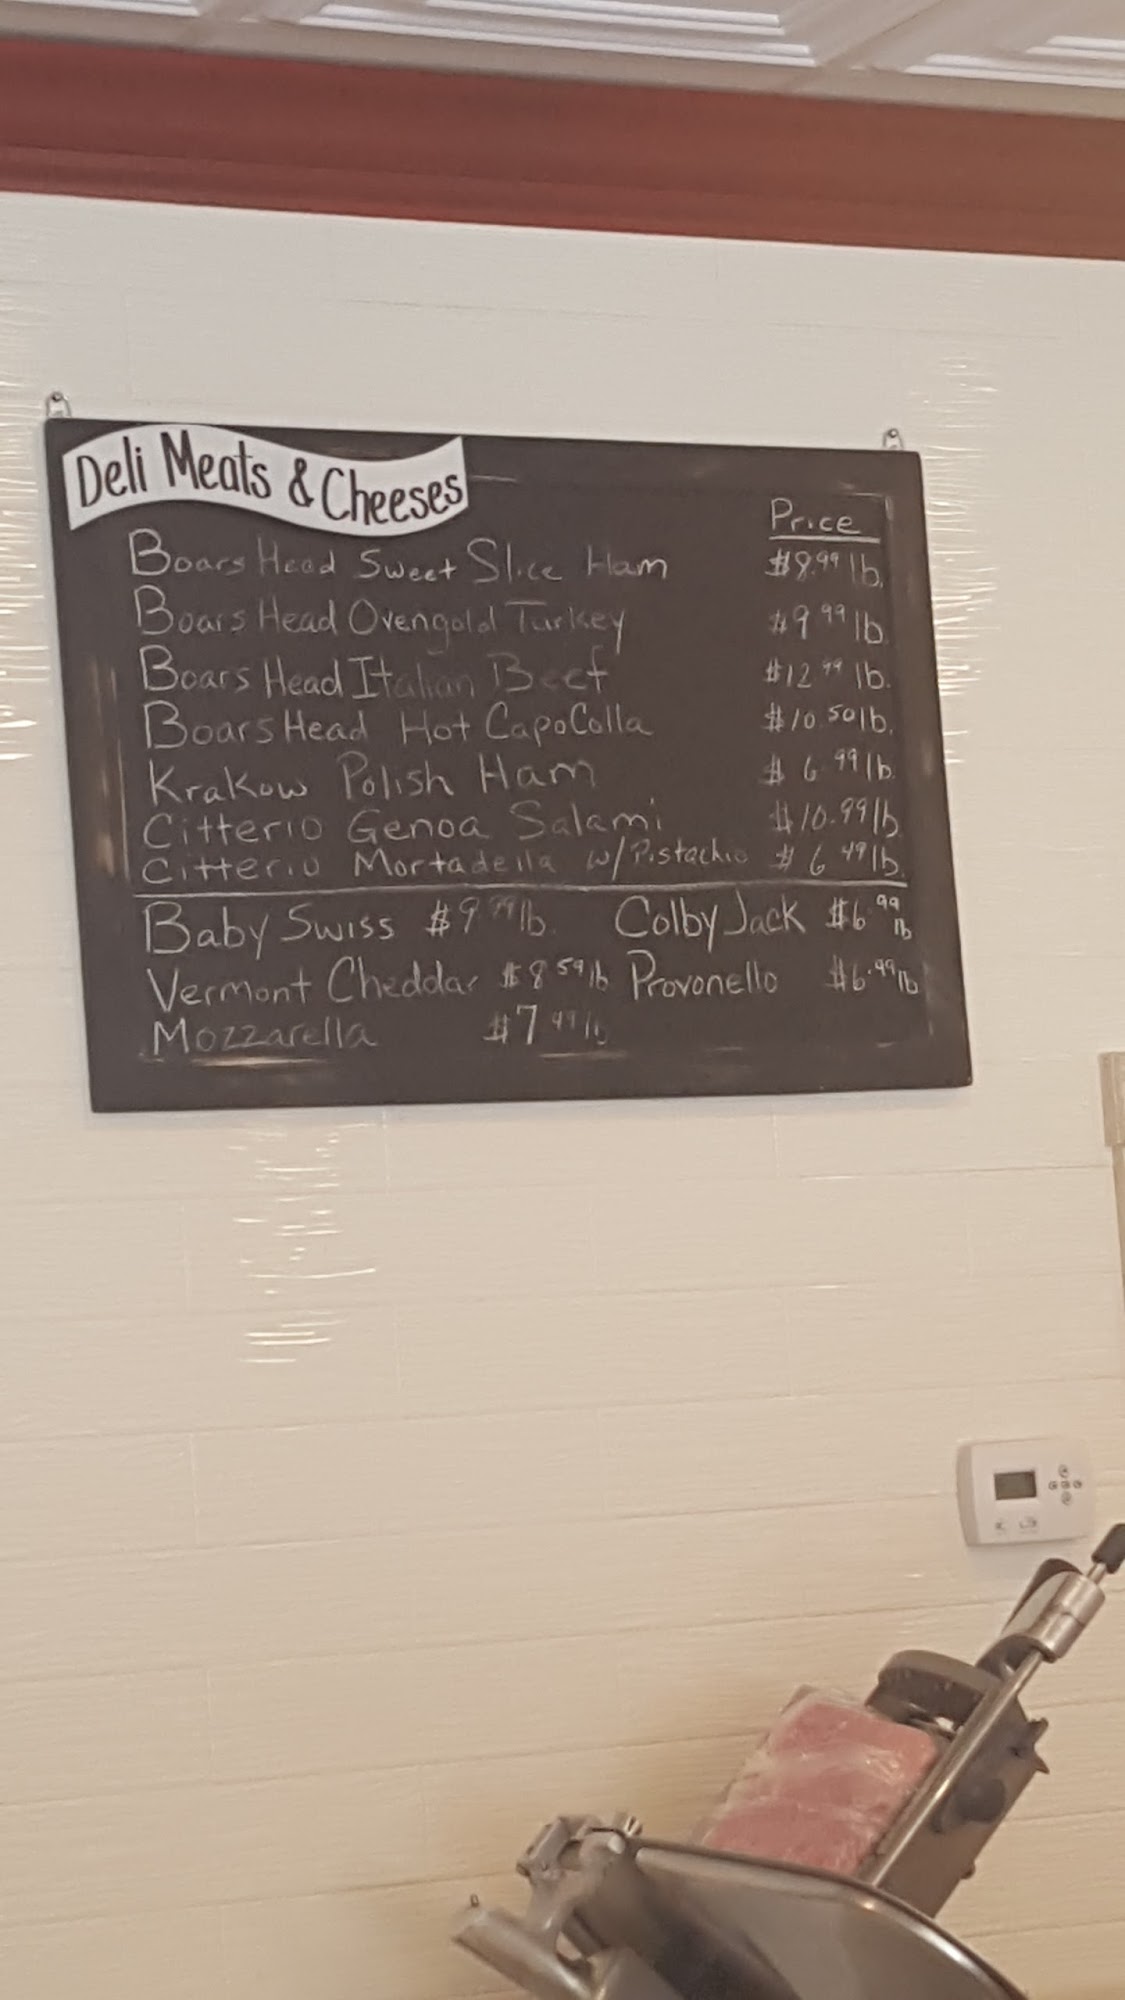 Deli Meats & Cheeses
Price
Boars Head Sweet Slice Ham $8.99 lb.
Boars Head Ovengold Turkey $9.99 lb.
Boars Head Italian Beef $12.99 lb.
Boars Head Hot CapoColla $10.50 lb.
Krakow Polish Ham $6.99 lb.
Citterio Genoa Salami $10.99 lb.
Citterio Mortadella w/ Pistachio $6.49 lb.
Baby Swiss $9.99 lb. Colby Jack $6.99 lb
Vermont Cheddar $8.59 lb Provonello $6.99 lb
Mozzarella $7.49 lb